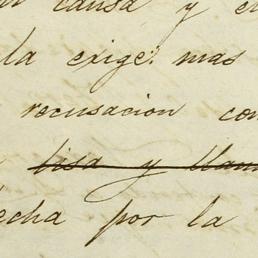 causa y el
la exige: mas
recusacion con
lisa y llam
echa por la